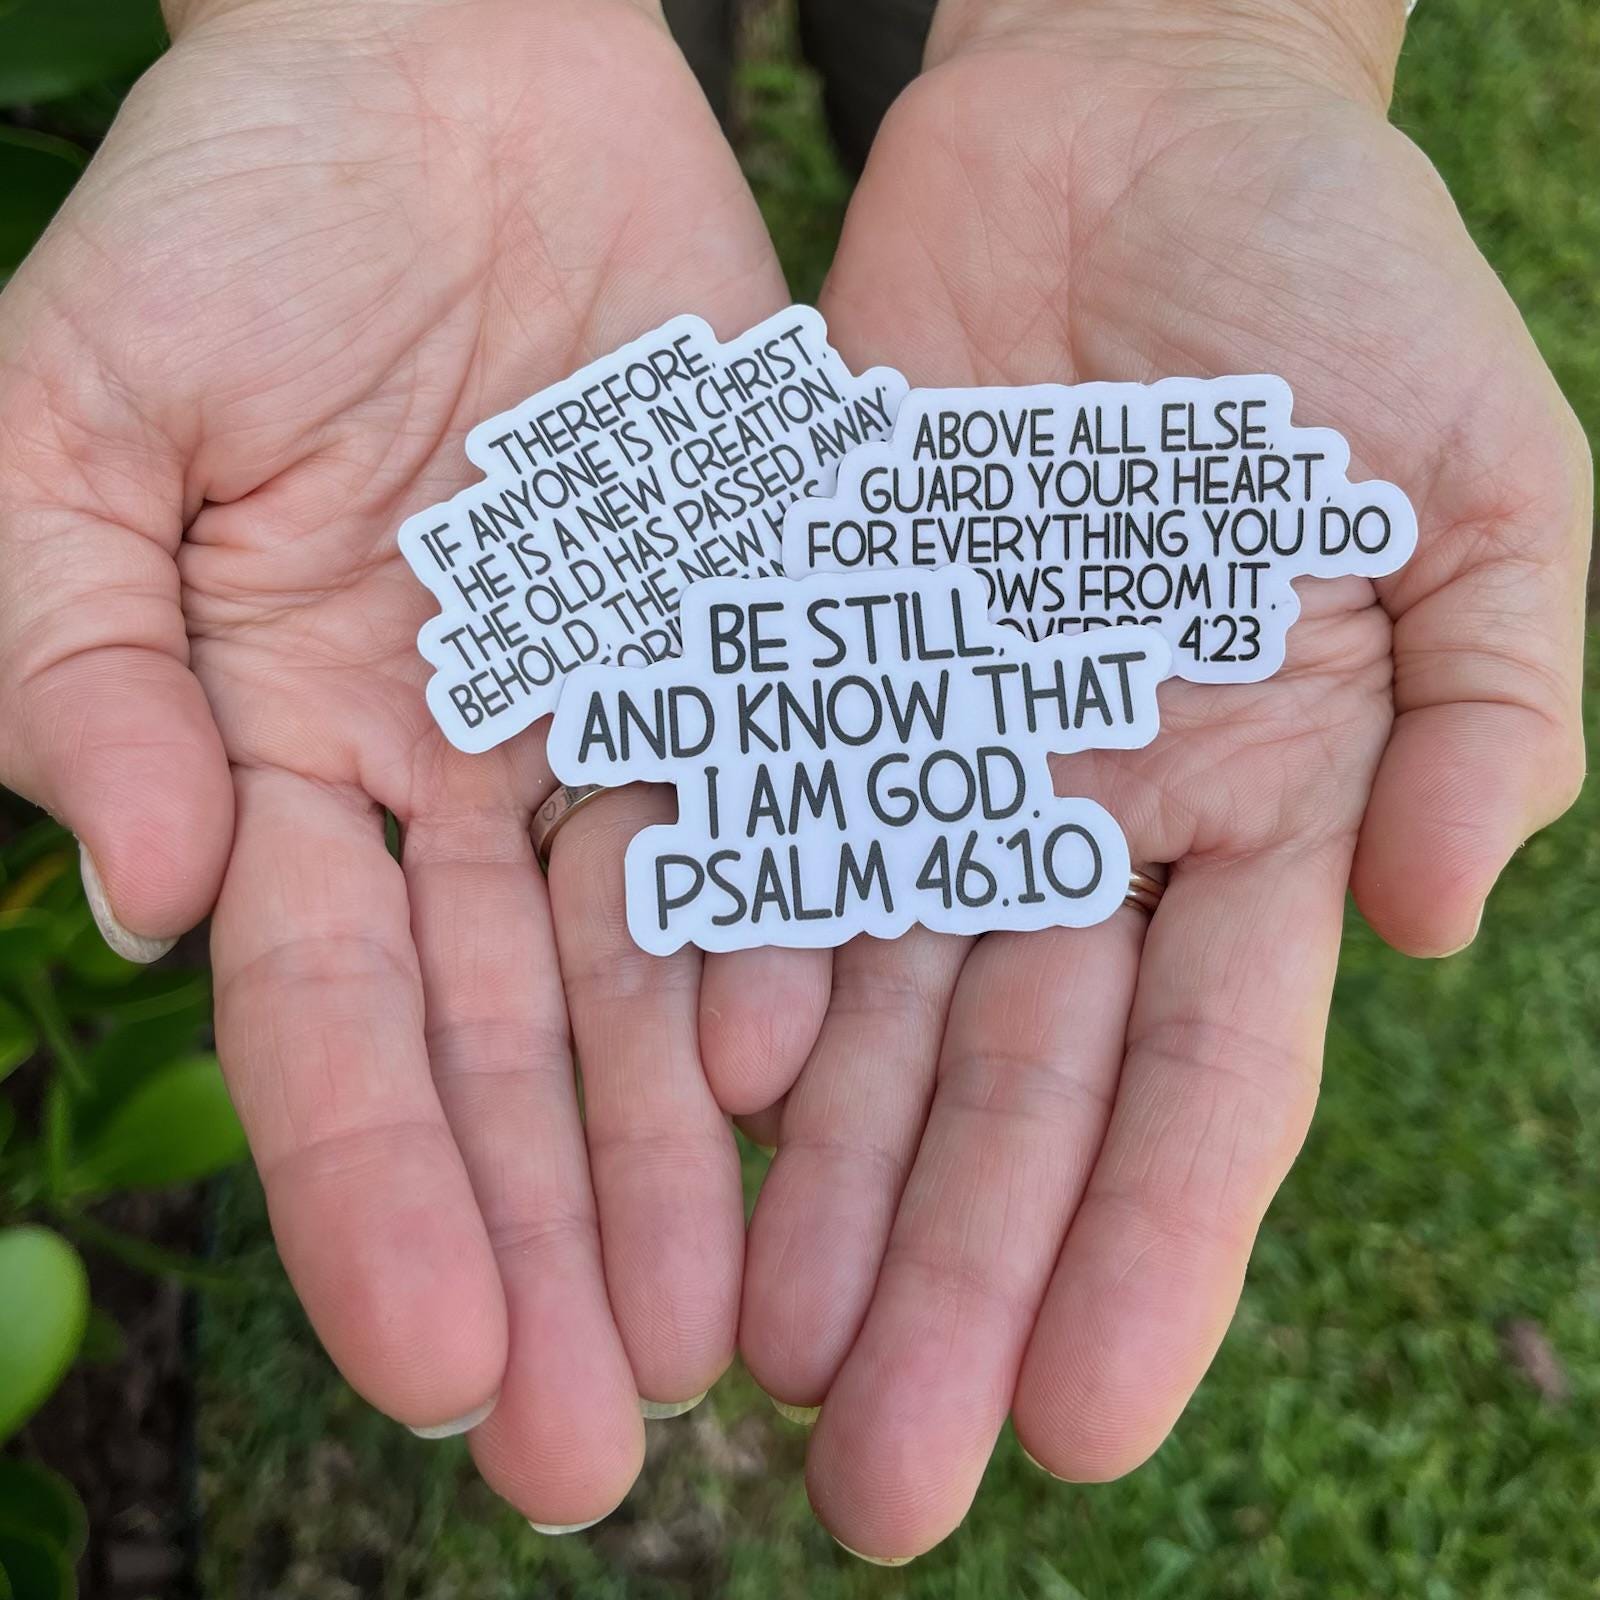 THEREFORE,
IF ANYONE IS IN CHRIST,
HE IS A NEW CREATION.
THE OLD HAS PASSED AWAY;
BEHOLD, THE NEW HAS
ABOVE ALL ELSE,
GUARD YOUR HEART,
FOR EVERYTHING YOU DO
FROM IT.
4:23
BE STILL,
AND KNOW THAT
I AM GOD.
PSALM 46:10